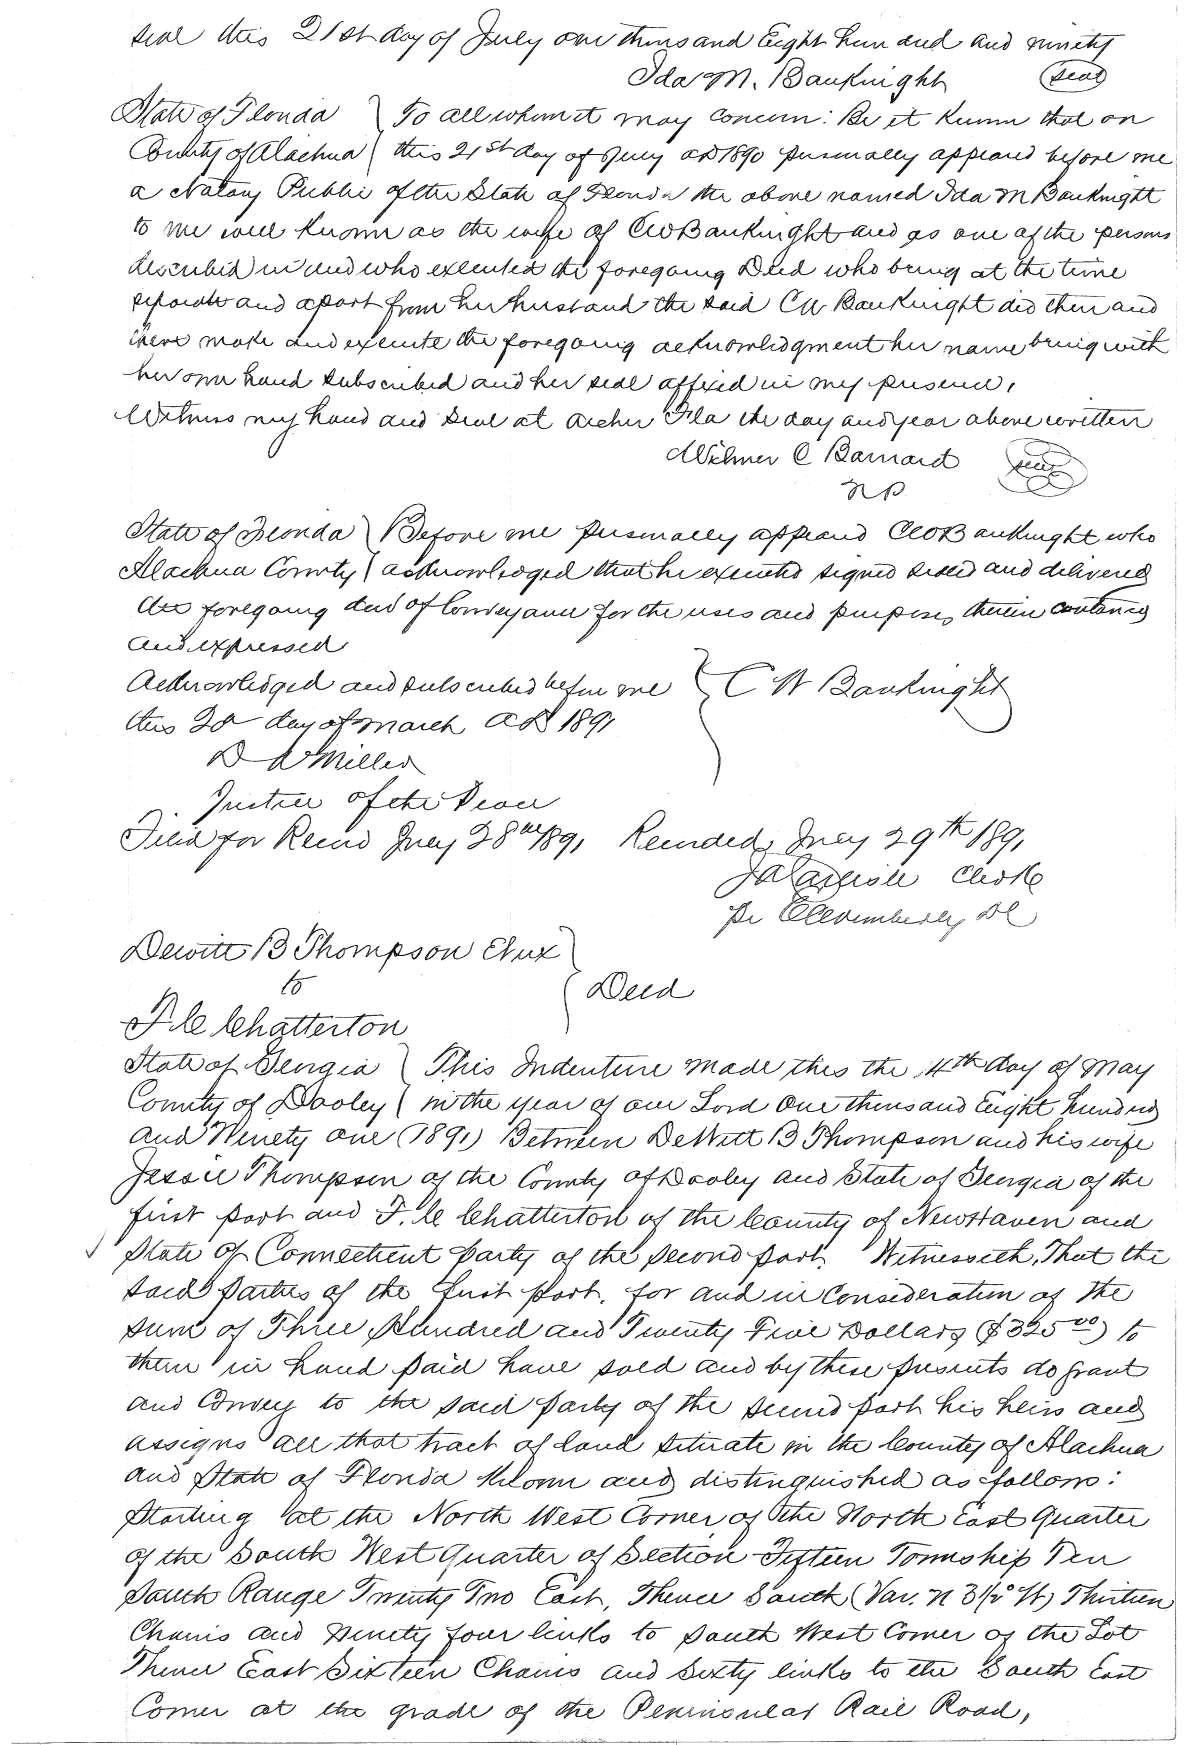 seal this 21st day of July one thousand Eight hundred and ninety
Ida M. Bauknight (seal)
State of Florida } To all whom it may concern: Be it known that on
County of Alachua } this 21st day of July AD 1890 personally appeared before me
a Notary Public of the State of Florida the above named Ida M Bauknight
to me well known as the wife of CW Bauknight and as one of the persons
described in and who executed the foregoing Deed who being at the time
separate and apart from her husband the said CW Bauknight did then and
there make and execute the foregoing acknowledgment her name being with
her own hand subscribed and her seal affixed in my presence,
Witness my hand and seal at Archer Fla the day and year above written
Wilmer C Barnard (seal)
NP
State of Florida } Before me personally appeared CW Bauknight who
Alachua County } acknowledged that he executed signed sealed and delivered
the foregoing deed of Conveyance for the uses and purposes therein contained
and expressed
Acknowledged and subscribed before me } C W Bauknight
this 20 day of March AD 1891
D W Miller
Justice of the Peace
Filed for Record July 28th 1891 Recorded July 29th 1891
JA Carlisle Clerk
Per Wimberly DC
Dewitt B Thompson Et ux }
to } Deed
F. C. Chatterton
State of Georgia } This Indenture made this the 4th day of May
County of Dooley } in the year of our Lord One thousand Eight hundred
and Ninety one (1891) Between DeWitt B Thompson and his wife
Jessie Thompson of the County of Dooley and State of Georgia of the
first part and F. C. Chatterton of the County of New Haven and
State of Connecticut party of the second part. Witnesseth, That the
said parties of the first part, for and in consideration of the
sum of Three Hundred and Twenty Five Dollars ($325 00) to
them in hand paid have sold and by these presents do grant
and Convey to the said party of the second part his heirs and
assigns all that tract of land situate in the County of Alachua
and State of Florida known and distinguished as follows:
Starting at the North West Corner of the North East Quarter
of the South West Quarter of Section Fifteen Township Ten
South Range Twenty Two East, Thence South (Var. N 3½° W) Thirteen
Chains and Ninety four links to South West Corner of the Lot
Thence East Sixteen Chains and Sixty links to the South East
Corner at the grade of the Peninsular Rail Road,